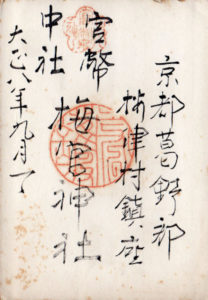 京都葛野郡
梅津村鎮座
官幣
中社
梅宮神社
大正八年九月一丁